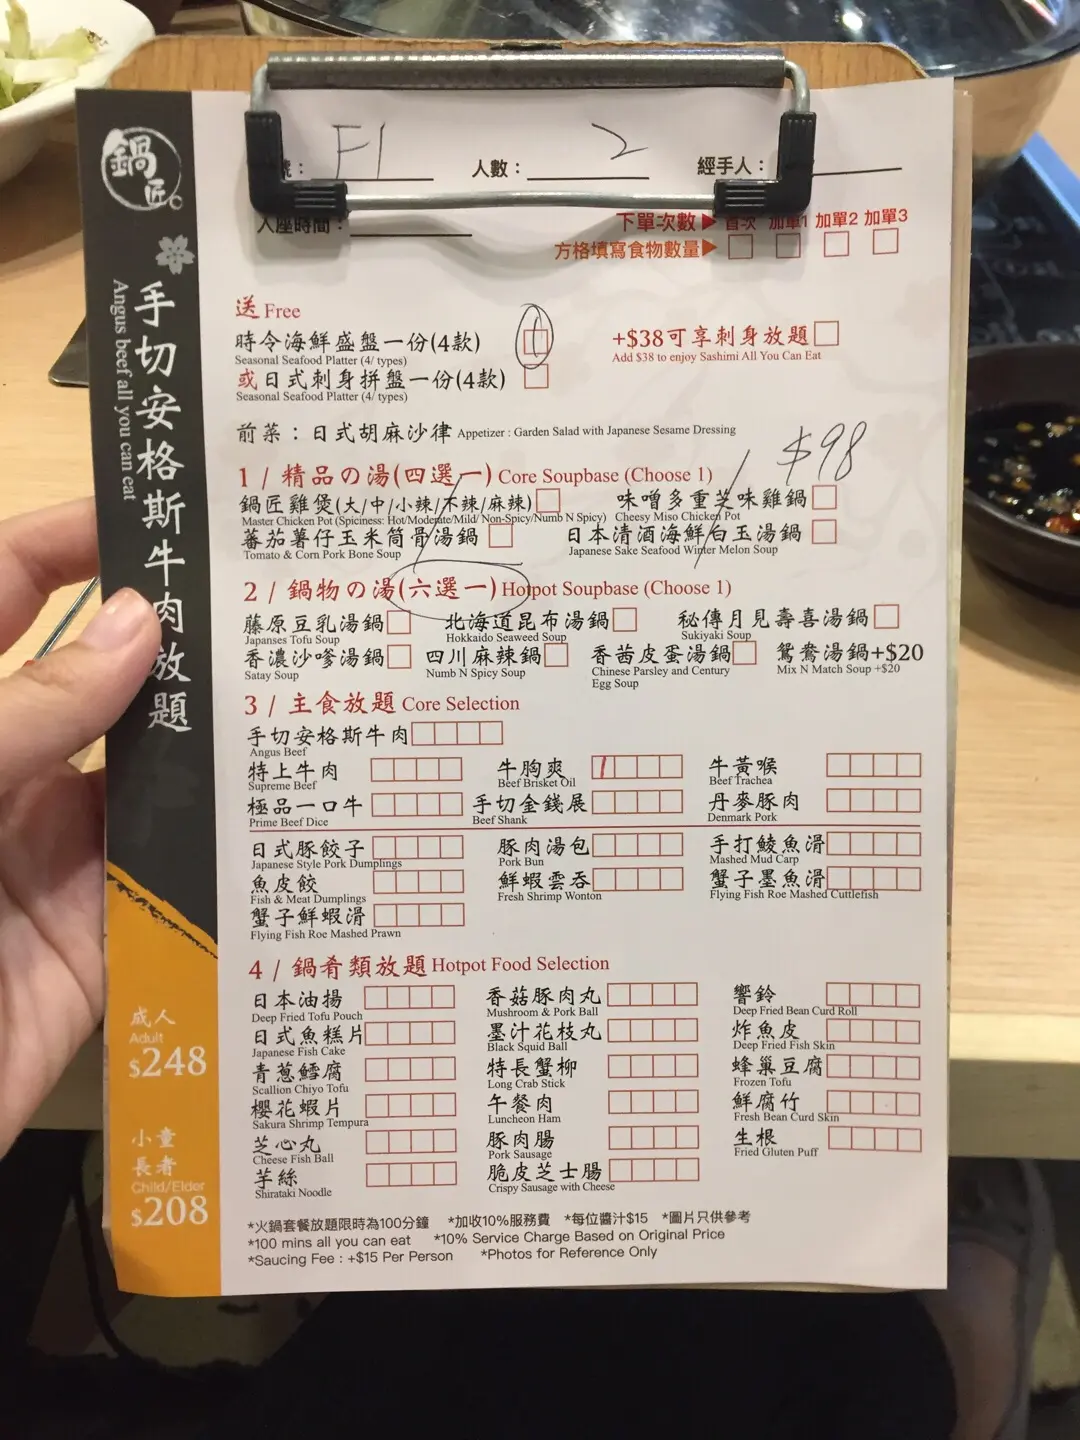 鍋匠
手切安格斯牛肉放題
Angus beef all you can eat
成人
Adult
$248
小童
長者
Child/Elder
$208
號： F1 人數： 2 經手人：
入座時間：
下單次數▶ 首次 加單1 加單2 加單3
方格填寫食物數量▶
送 Free
時令海鮮盛盤一份(4款) +$38可享刺身放題
Seasonal Seafood Platter (4/ types) Add $38 to enjoy Sashimi All You Can Eat
或日式刺身拼盤一份(4款)
Seasonal Seafood Platter (4/ types)
前菜：日式胡麻沙律 Appetizer : Garden Salad with Japanese Sesame Dressing
$98
1 / 精品の湯(四選一) Core Soupbase (Choose 1)
鍋匠雞煲(大/中/小辣/不辣/麻辣) 味噌多重芝味雞鍋
Master Chicken Pot (Spiciness: Hot/Moderate/Mild/ Non-Spicy/Numb N Spicy) Cheesy Miso Chicken Pot
蕃茄薯仔玉米筒骨湯鍋 日本清酒海鮮白玉湯鍋
Tomato & Corn Pork Bone Soup Japanese Sake Seafood Winter Melon Soup
2 / 鍋物の湯(六選一) Hotpot Soupbase (Choose 1)
藤原豆乳湯鍋 北海道昆布湯鍋 秘傳月見壽喜湯鍋
Japanses Tofu Soup Hokkaido Seaweed Soup Sukiyaki Soup
香濃沙嗲湯鍋 四川麻辣鍋 香茜皮蛋湯鍋 鴛鴦湯鍋+$20
Satay Soup Numb N Spicy Soup Chinese Parsley and Century Egg Soup Mix N Match Soup +$20
3 / 主食放題 Core Selection
手切安格斯牛肉
Angus Beef
特上牛肉 牛胸爽 牛黃喉
Supreme Beef Beef Brisket Oil Beef Trachea
極品一口牛 手切金錢展 丹麥豚肉
Prime Beef Dice Beef Shank Denmark Pork
日式豚餃子 豚肉湯包 手打鯪魚滑
Japanese Style Pork Dumplings Pork Bun Mashed Mud Carp
魚皮餃 鮮蝦雲吞 蟹子墨魚滑
Fish & Meat Dumplings Fresh Shrimp Wonton Flying Fish Roe Mashed Cuttlefish
蟹子鮮蝦滑
Flying Fish Roe Mashed Prawn
4 / 鍋肴類放題 Hotpot Food Selection
日本油揚 香菇豚肉丸 響鈴
Deep Fried Tofu Pouch Mushroom & Pork Ball Deep Fried Bean Curd Roll
日式魚糕片 墨汁花枝丸 炸魚皮
Japanese Fish Cake Black Squid Ball Deep Fried Fish Skin
青蔥鱈腐 特長蟹柳 蜂巢豆腐
Scallion Chiyo Tofu Long Crab Stick Frozen Tofu
櫻花蝦片 午餐肉 鮮腐竹
Sakura Shrimp Tempura Luncheon Ham Fresh Bean Curd Skin
芝心丸 豚肉腸 生根
Cheese Fish Ball Pork Sausage Fried Gluten Puff
芋絲 脆皮芝士腸
Shirataki Noodle Crispy Sausage with Cheese
*火鍋套餐放題限時為100分鐘 *加收10%服務費 *每位醬汁$15 *圖片只供參考
*100 mins all you can eat *10% Service Charge Based on Original Price
*Saucing Fee : +$15 Per Person *Photos for Reference Only